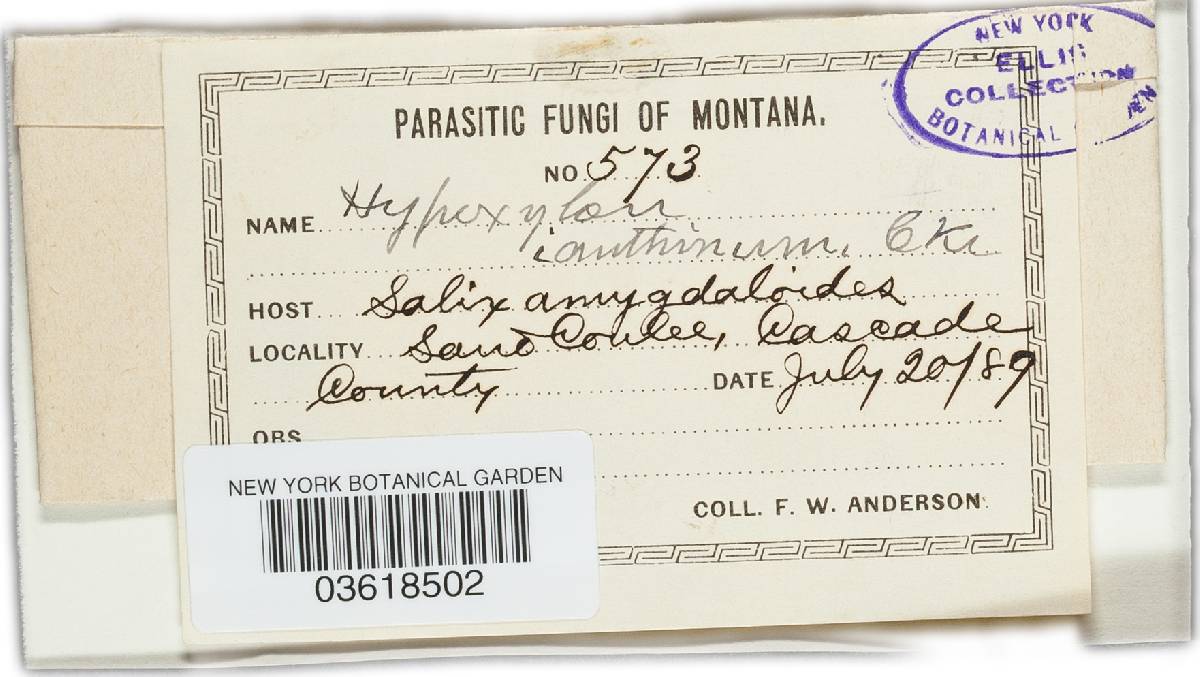 NEW YORK
ELLIS
COLLECTION
BOTANICAL
PARASITIC FUNGI OF MONTANA.
NO. 573
NAME Hypoxylon
ianthinum, Cke
HOST Salix amygdaloides
LOCALITY Sand Coulee, Cascade
County DATE July 20/89
OBS
COLL. F. W. ANDERSON.
NEW YORK BOTANICAL GARDEN
03618502